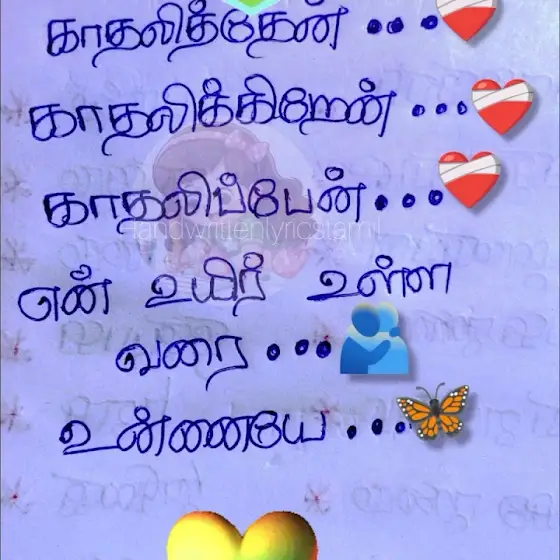 காதலித்தேன் ...
காதலிக்கிறேன் ...
காதலிப்பேன்...
Handwrittenlyricstamil
என் உயிர் உள்ள
வரை ...
உன்னையே ...